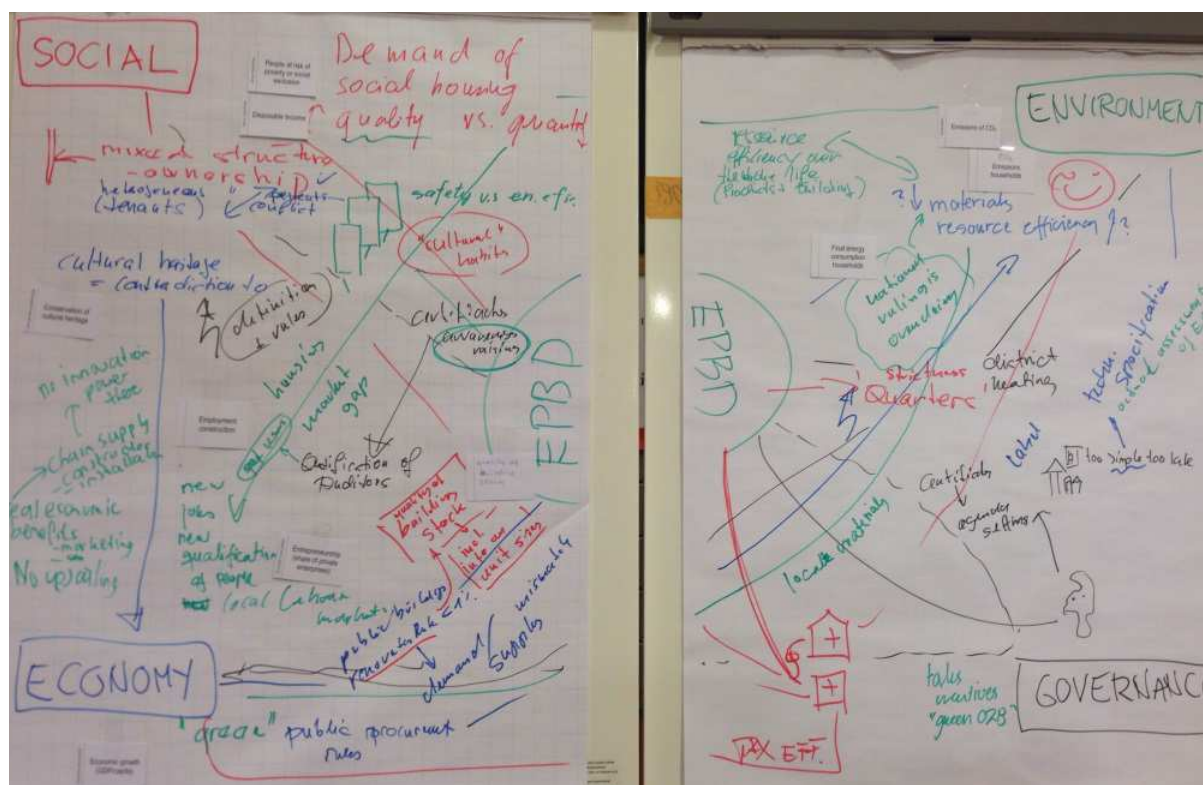 SOCIAL
People at risk of
poverty or social
exclusion
Disposable Income
Demand of
social housing
quality vs. quantity
mixed structure
- ownership
heterogeneous
(tenants)
conflict
safety vs en. effi.
"cultural"
habits
cultural heritage
= contradiction to
Conservation of
cultural heritage
definition
+ rules
certificates
awareness
raising
housing
market
gap
EPBD
no innovation
power
there
Employment
construction
Chain supply
constructer
installater
real economic
benefits
- marketing
No upscaling
Qualification of
Auditors
new
jobs
new
qualification
of people
local labour
market
Entrepreneurship
(share of private
enterprises)
quality of
building
stock
unit sizes
public buildings
renovation rate <1%
demand/
supply
mismatch
ECONOMY
"green" public procurement
rules
Economic growth
(GDP/capita)
ENVIRONMENT
Emissions of CO₂
Emissions
households
resource
efficiency over
the whole life
(Products + building)
? materials
resource efficiency ?
Final energy
consumption
households
national
rulings
EPBD
strictness
Quarters
district
heating
techn.
specification
actual assessment
of
Label
too simple too late
Certificates
agenda
setting
locale materials
GOVERNANCE
incentives
EFF.